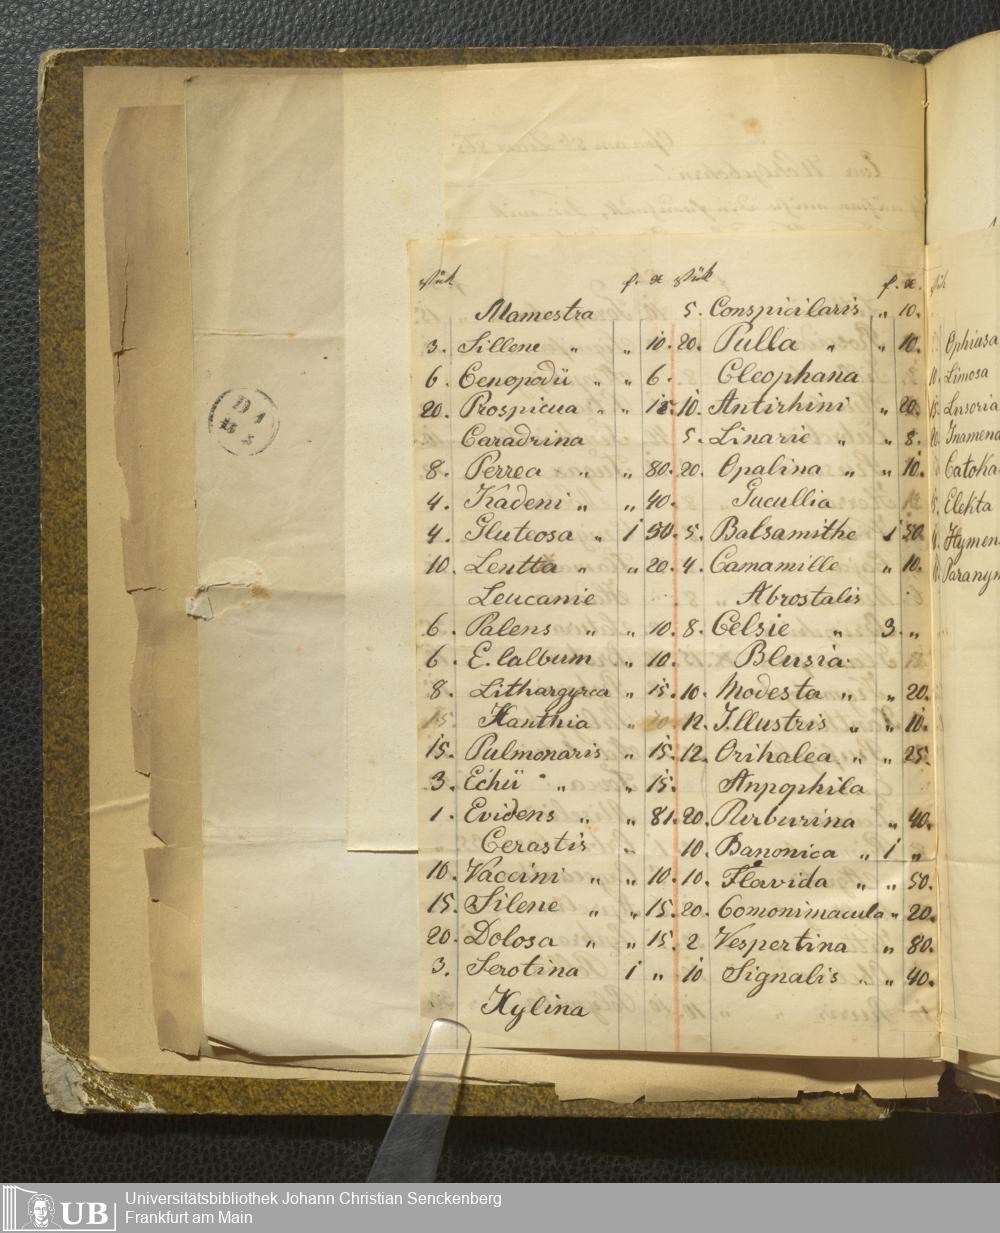 Stük f. x
Mamestra
3. Sillene „ „ 10.
6. Cenopodii „ „ 6.
20. Prospicua „ „ 15.
Caradrina
8. Perrea „ „ 80.
4. Kadeni „ „ 40.
4. Gluteosa „ 1 50.
10. Lentta „ „ 20.
Leucanie
6. Palens „ „ 10.
6. E. lalbum „ 10.
8. Lithargyrea „ 15.
15. Xanthia „ 10.
15. Pulmonaris „ 15.
3. Echii „ „ 15.
1. Evidens „ „ 81.
Cerastis „
10. Vaccini „ „ 10.
15. Silene „ „ 15.
20. Dolosa „ „ 15.
3. Serotina 1 „
Xylina
Stük f. x.
5. Conspicilaris „ 10.
20. Pulla „ „ 10.
Cleophana
10. Antirhini „ 20.
5. Linarie „ „ 8.
20. Opalina „ „ 10.
Cucullia
5. Balsamithe 1 50.
4. Camamille „ 10.
Abrostalis
8. Celsie „ 3. „
Blusia
10. Modesta „ „ 20.
12. Illustris „ „ 10.
12. Orihalea „ „ 25.
Anpophila
20. Rurburina „ 40.
10. Banonica „ 1 „
10. Flavida „ „ 50.
20. Comonimacula „ 20.
2 Vespertina „ 80.
10 Signalis „ „ 40.
Ophiusa
10. Limosa
15. Lusoria
20. Inamena
Catoka
5. Elekta
Hymen
Paranym
D 1
UB
Universitätsbibliothek Johann Christian Senckenberg
Frankfurt am Main